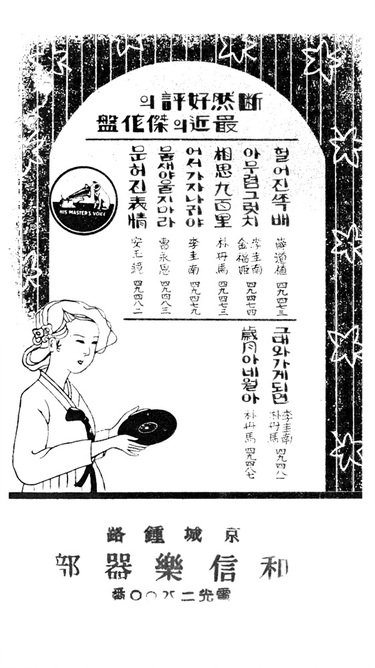 斷然好評의
最近의傑作盤
헐어진쪽배
아무렴그렇치
李圭南
相思九百里
朴丹馬 四九四七三
어서가자나귀야
李圭南 四九四七九
물새야울지마라
四九四八三
문허진表情
安玉鏡 四九四八二
HIS MASTER'S VOICE
그대와가게되면
李圭南
朴丹馬 四九四八一
歲月아네월아
朴丹馬 四九四八七
京城鍾路
和信樂器部
電光二八〇〇番